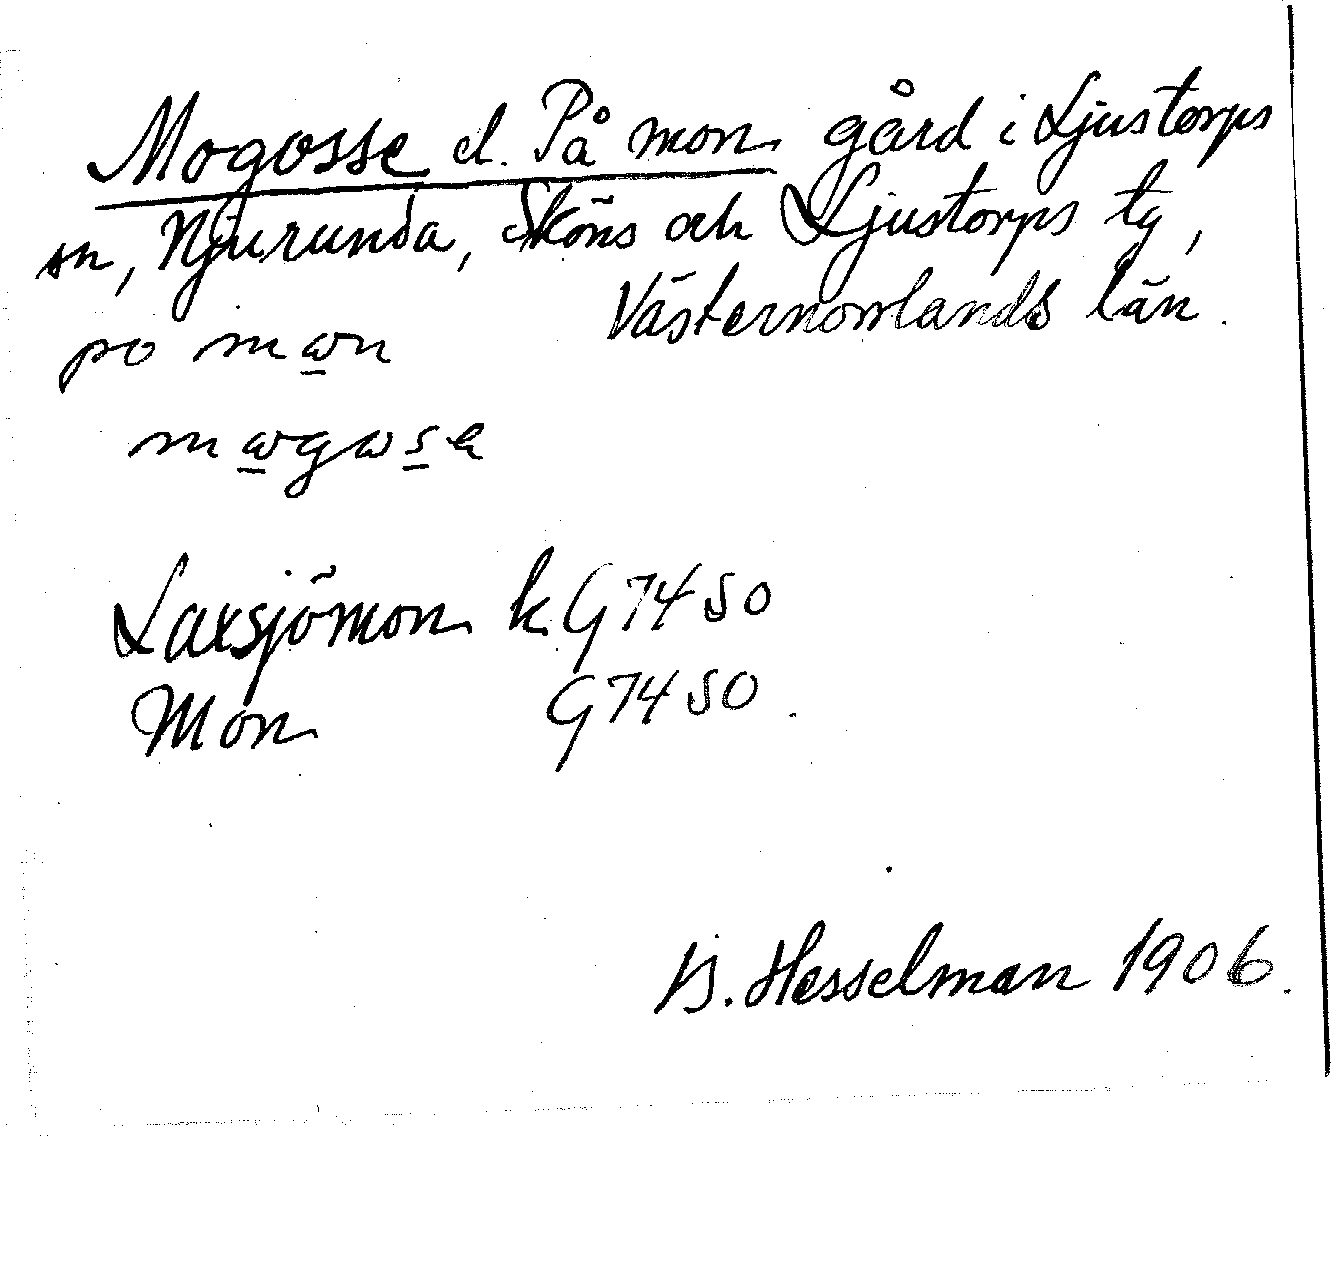 Mogosse el. På mon gård i Ljustorps
sn, Njurunda, Sköns och Ljustorps tg,
Västernorrlands län.
po mωn
mωgωse
Laxsjömon k. G 74 50
Mon G 74 50.
B. Hesselman 1906.